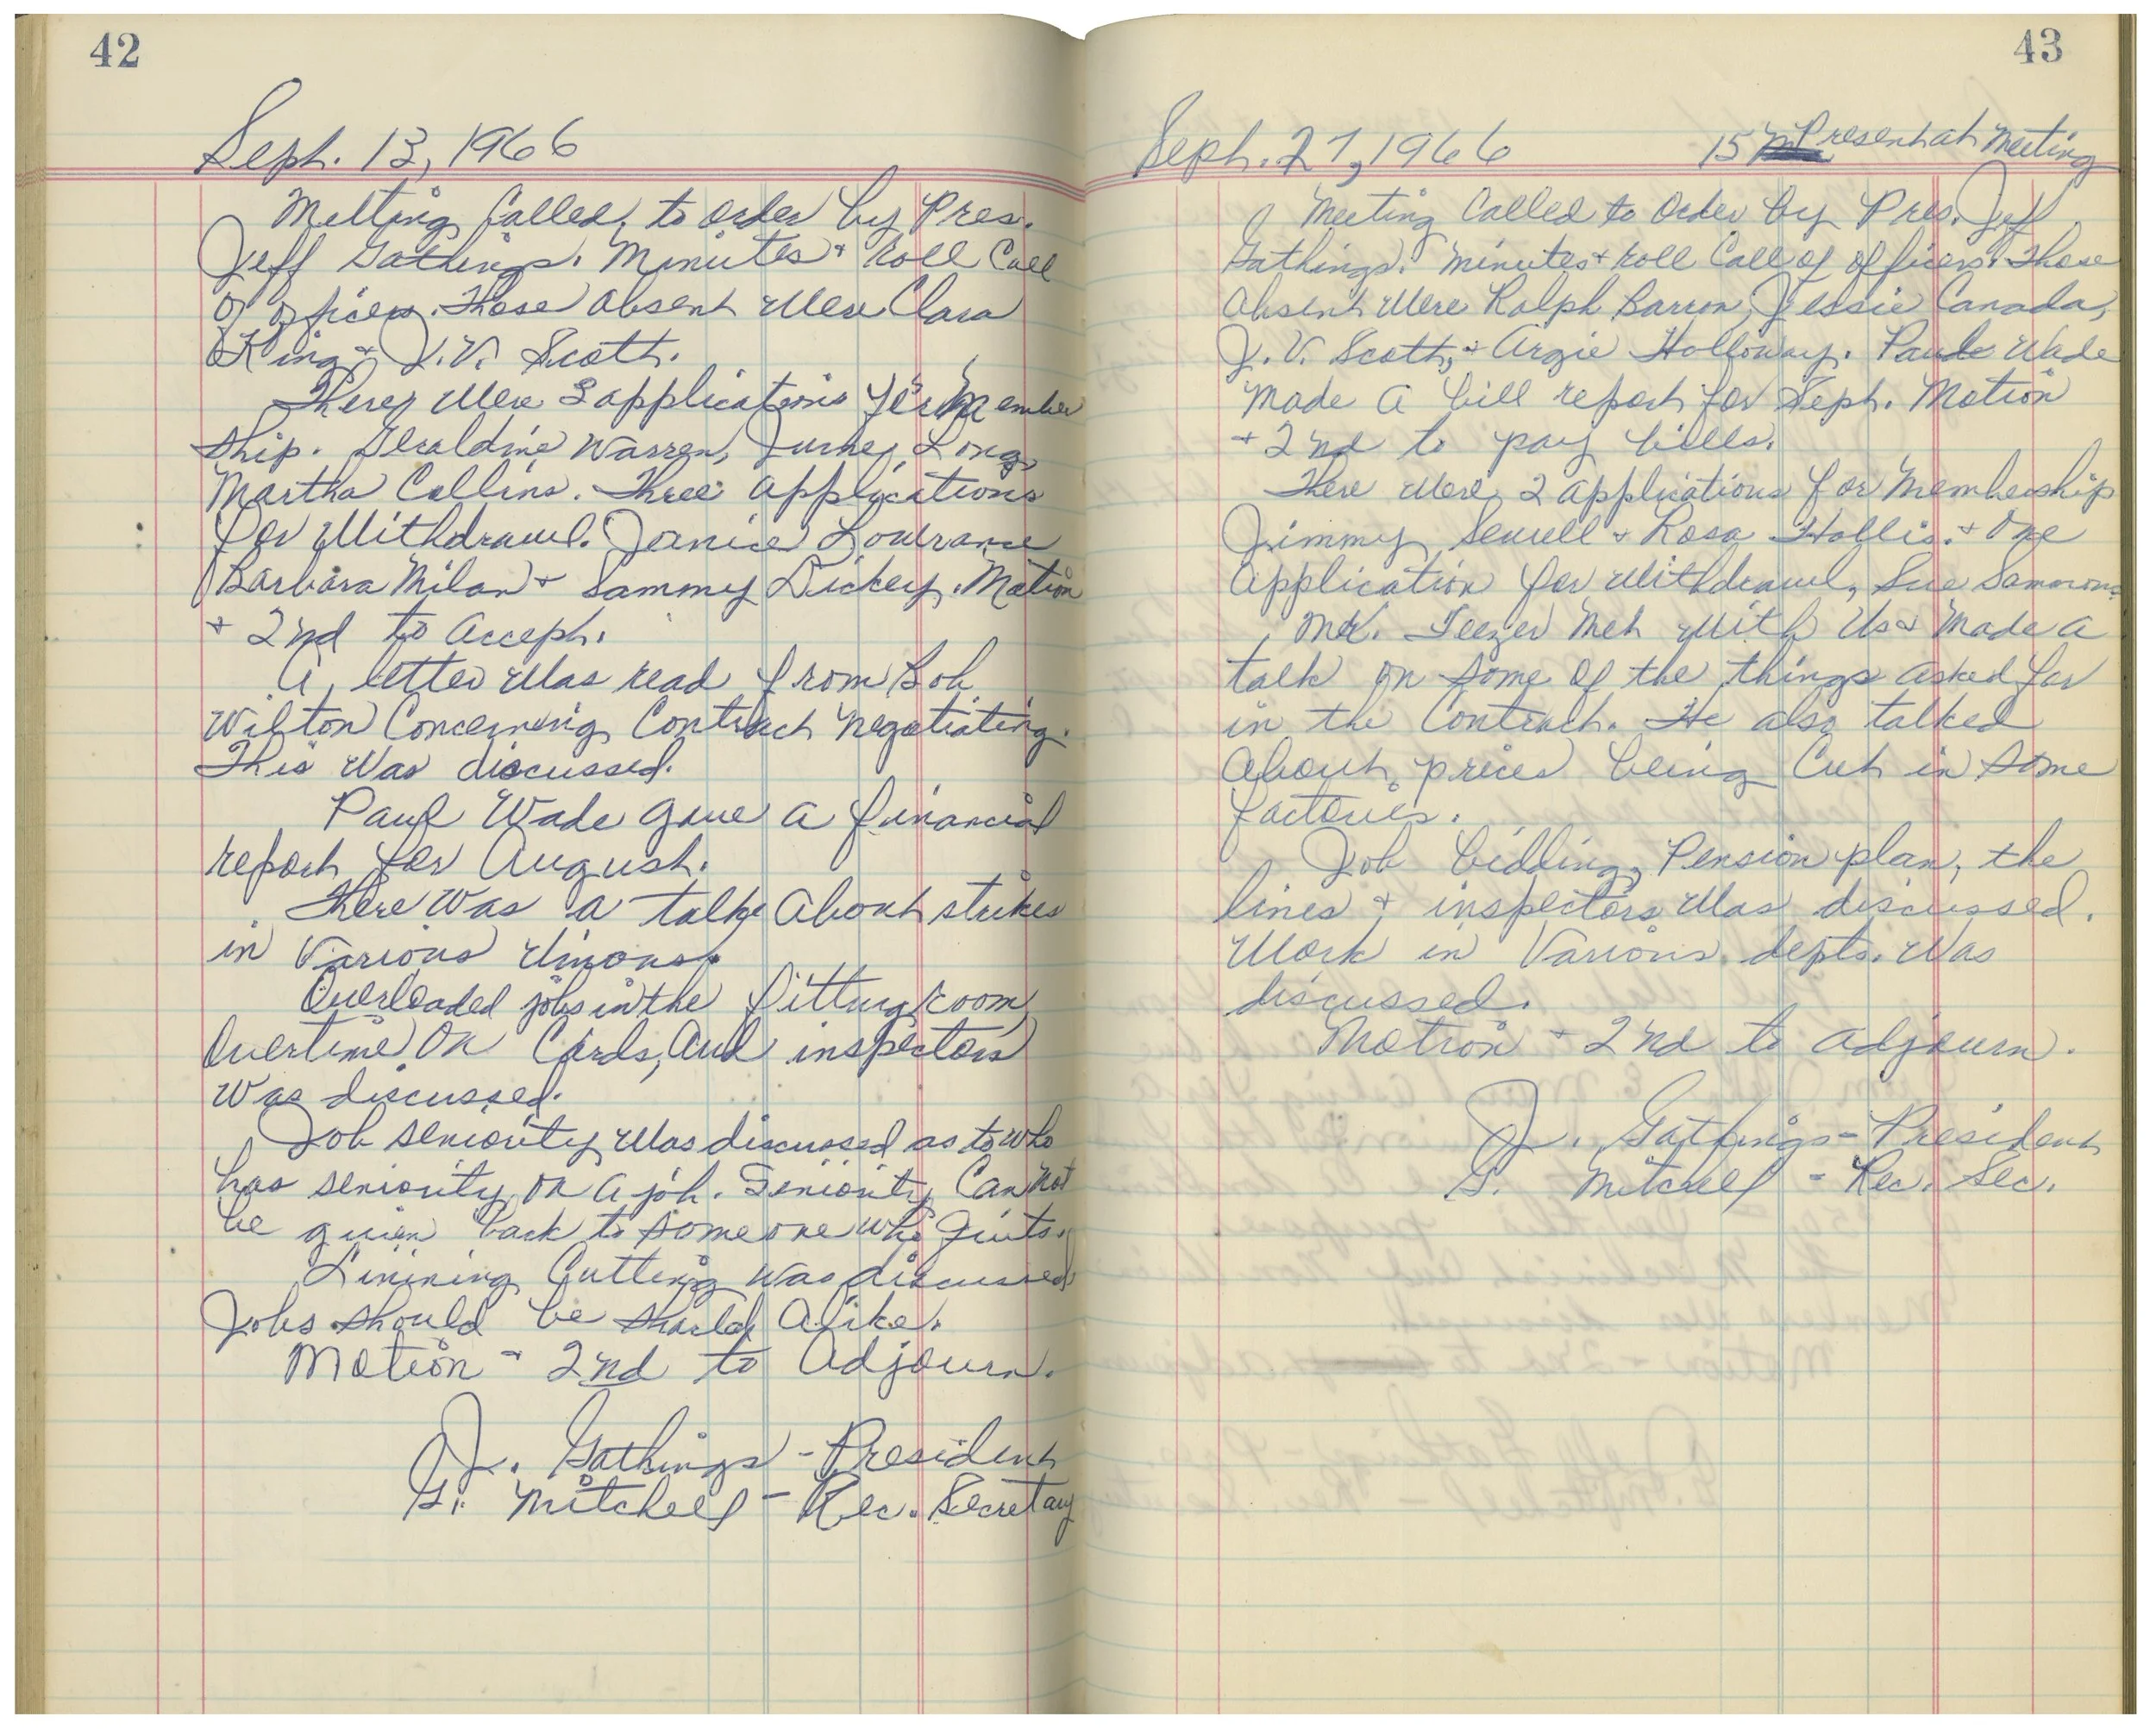 42
Sept. 13, 1966
Meeting Called to order by Pres.
Jeff Gathings. Minutes + Roll Call
of officers. Those absent were Clara
King + J.V. Scott.
There were 3 applications for Member
ship. Geraldine Warren, Long,
Martha Collins. Three applications
for Withdrawl. Janice Lowrance
Barbara Milan + Sammy Dickey. Motion
+ 2nd to Accept.
A letter was read from Bob
Wilton Concerning Contract Negotiating.
This was discussed.
Paul Wade gave a financial
report for August.
There was a talk About strikes
in Various Unions.
Overloaded jobs in the fitting room
Overtime On Cards, And inspectors
was discussed.
Job seniority was discussed as to who
has seniority on a job. Seniority Can not
be given back to someone who quits.
Linining Cutting was discussed
Jobs should be Alike.
Motion + 2nd to Adjourn.
J. Gathings - President
G. Mitchell - Rec. Secretary
43
Sept. 27, 1966
15 Present at Meeting
Meeting Called to Order by Pres. Jeff
Gathings. Minutes + roll Call of officers. Those
Absent were Ralph Barron, Jessie Canada,
J.V. Scott, + Argie Holloway. Paul Wade
Made A bill report for Sept. Motion
+ 2nd to pay bills.
There were 2 applications for Membership
Jimmy Sewell + Rosa Hollis. + One
Application for Withdrawl, Sue Sammons
Mr. Teezer Met With Us + Made a
talk on some of the things asked for
in the Contract. He also talked
About prices being Cut in some
factories.
Job bidding, Pension plan, the
lines + inspectors was discussed.
Work in Various depts. was
discussed.
Motion + 2nd to adjourn.
J. Gathings - President
G. Mitchell - Rec. Sec.